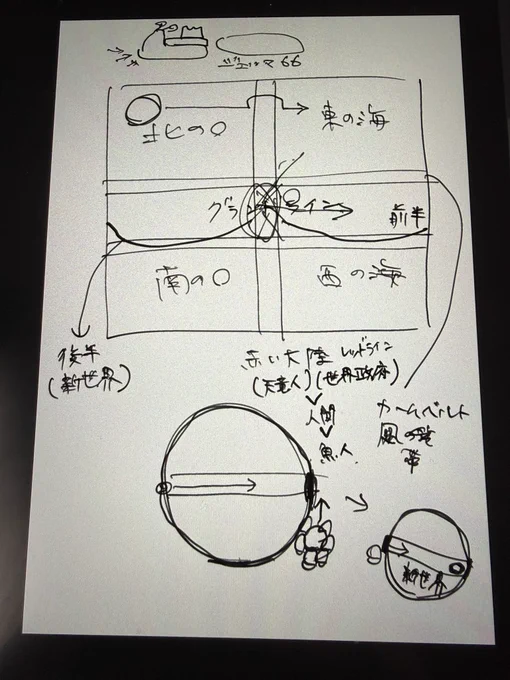 ジェルマ66
北の○
東の海
グラ
ライン
前半
南の○
西の海
後半
(新世界)
赤い大陸 レッドライン
(天竜人)(世界政府)
人間
魚人
カームベルト
風の
帯
新世界